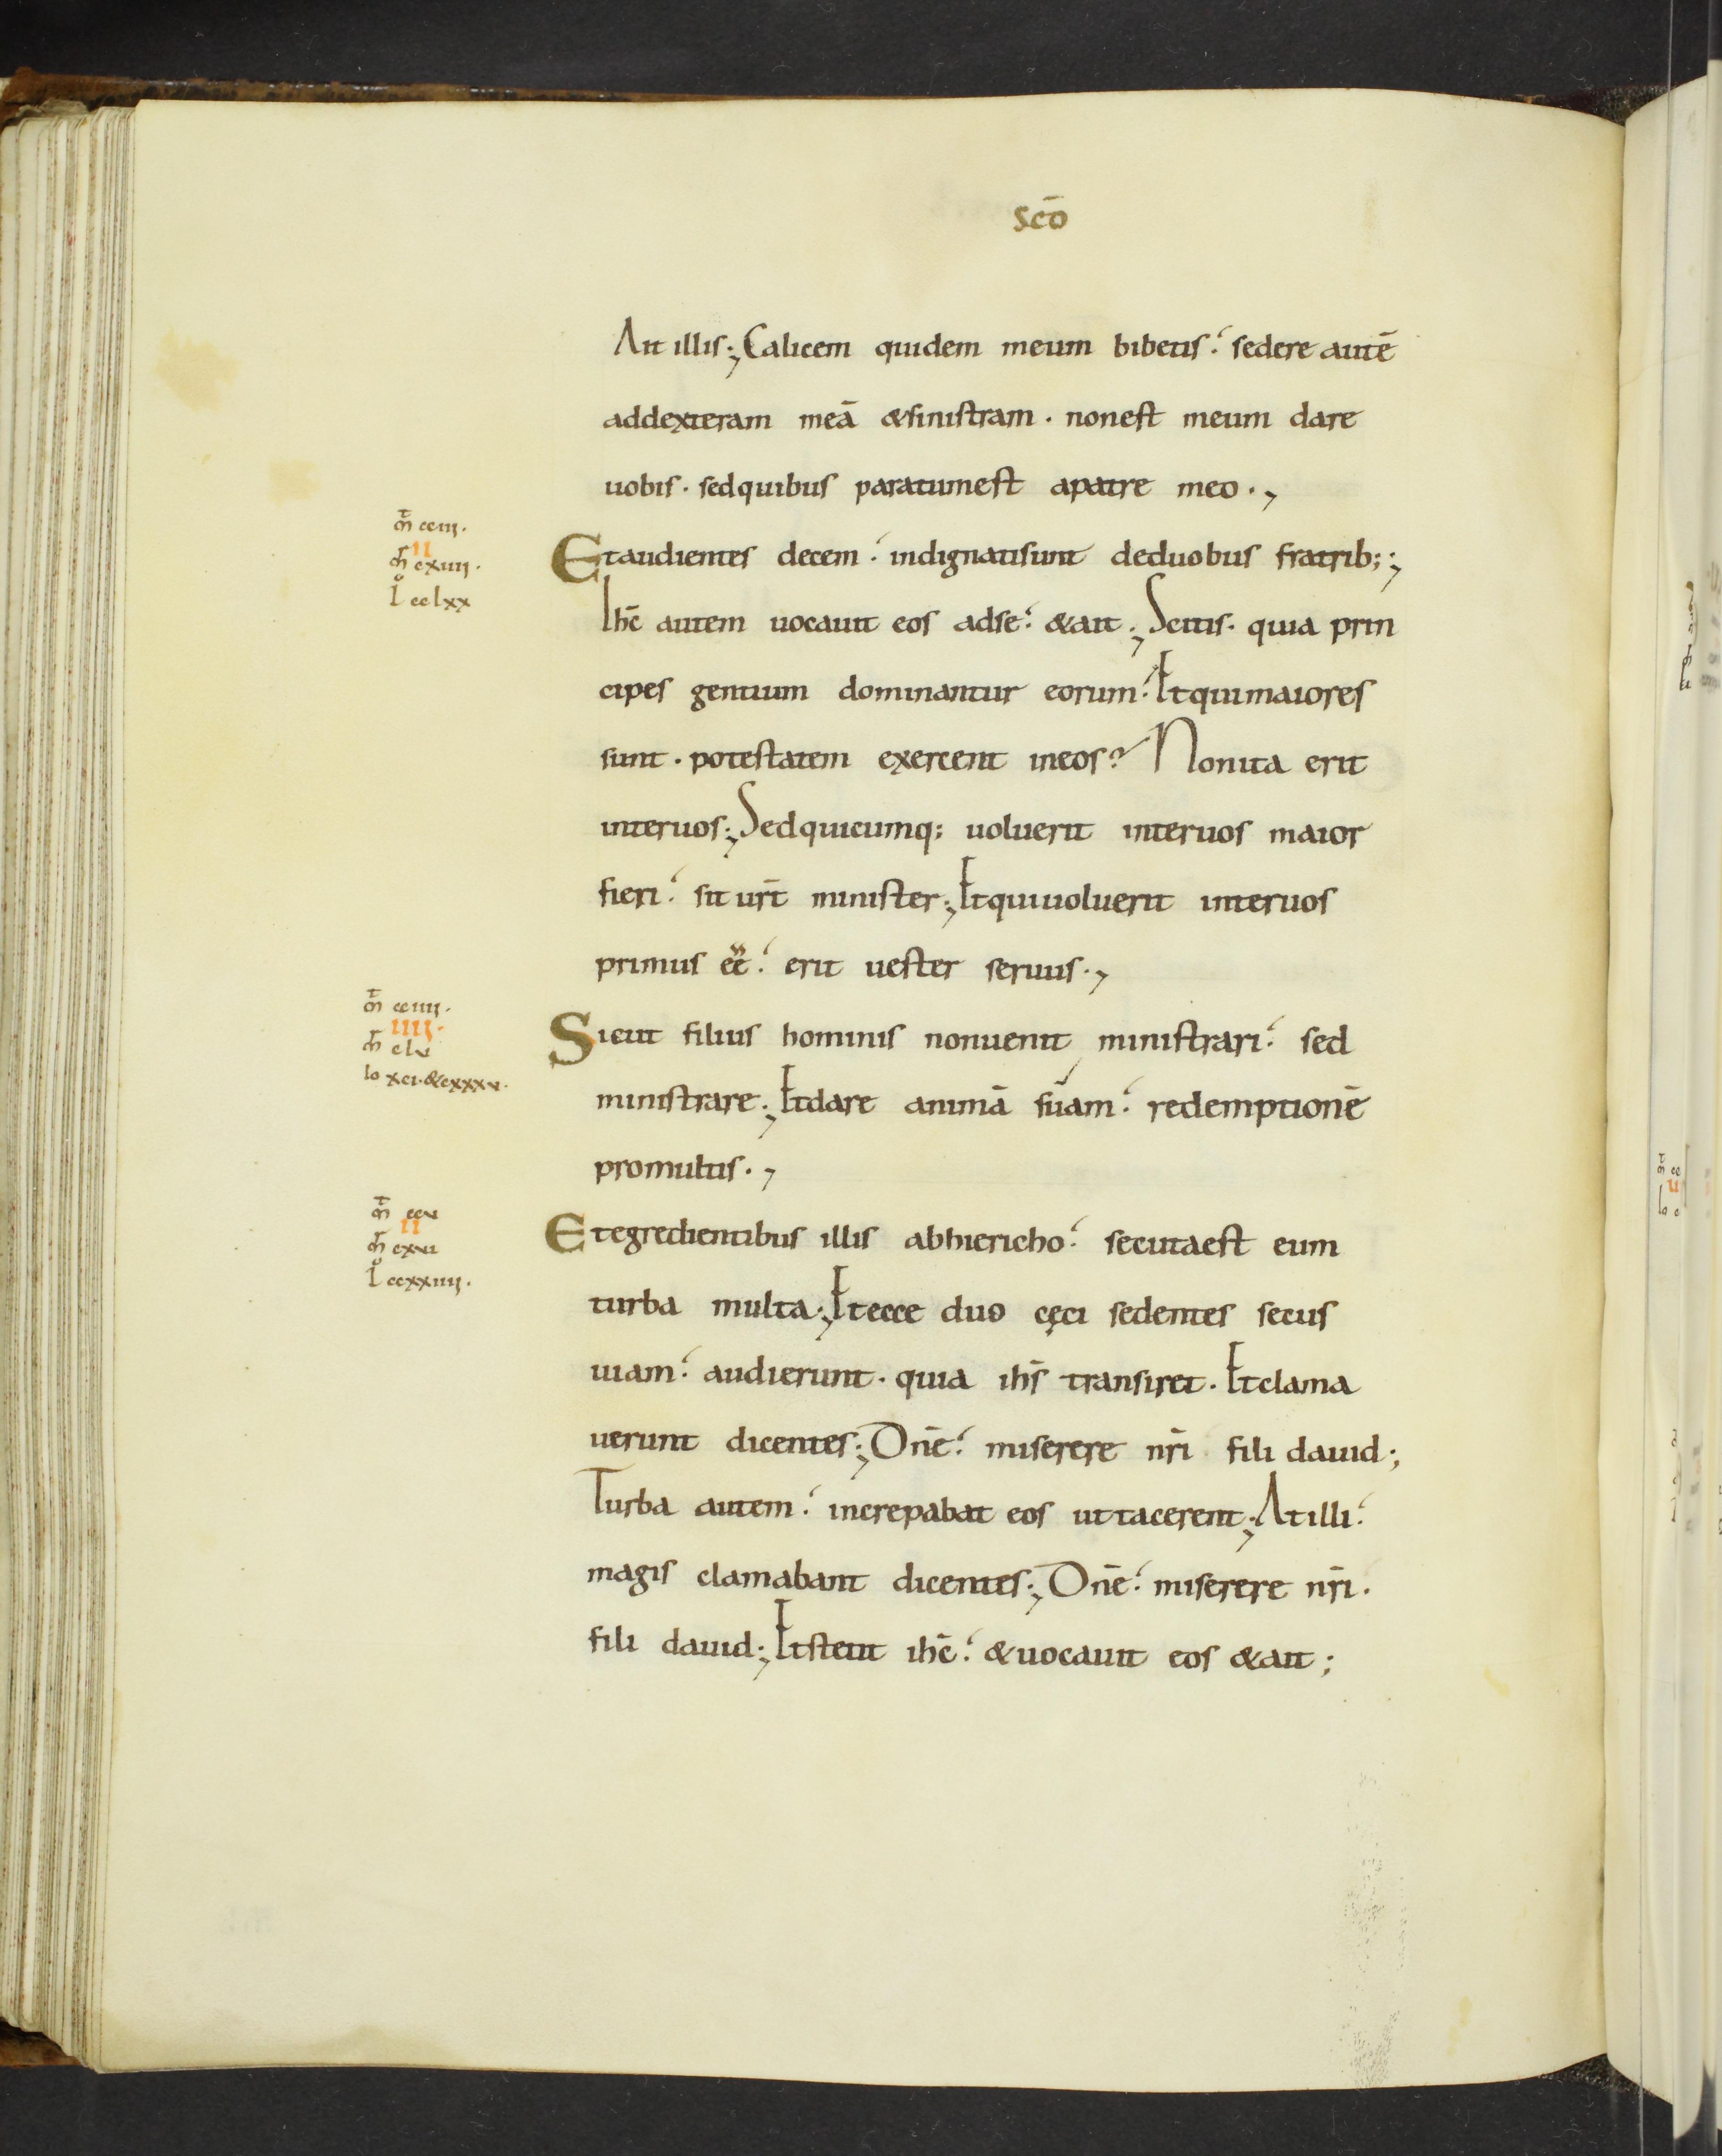 scō
Ait illis; Calicem quidem meum bibetis. sedere autē
addexteram meā & sinistram . nonest meum dare
uobis . sedquibus paratumest apatre meo .,
m̄ cciii.
II
m̄ cxiiii.
l cclxx
Etaudientes decem. indignatisunt deduobus fratrib;;
Ihc̄ autem uocauit eos adse. & ait; Scitis . quia prin
cipes gentium dominantur eorum. Etquimaiores
sunt . potestatem exercent ineos? Nonita erit
interuos; Sedquicumq; uoluerit interuos maior
fieri. sit ur̄t minister; Etquiuoluerit interuos
primus ee. erit uester seruus .,
m̄ cciiii.
IIII.
m̄ clv
lo xci. & cxxxv.
Sicut filius hominis nonuenit ministrari. sed
ministrare; Etdare animā suam. redemptionē
promultis .,
m̄ ccv
II
m̄ cxvi
l ccxxiiii.
Etegredientibus illis abhiericho. secutaest eum
turba multa; Etecce duo cęci sedentes secus
uiam. audierunt . quia ihs̄ transiret . Etclama
uerunt dicentes; Dnē. miserere nr̄i fili dauid;
Turba autem. increpabat eos uttacerent; Atilli.
magis clamabant dicentes; Dnē. miserere nr̄i .
fili dauid; Etstetit ihc̄. & uocauit eos & ait;